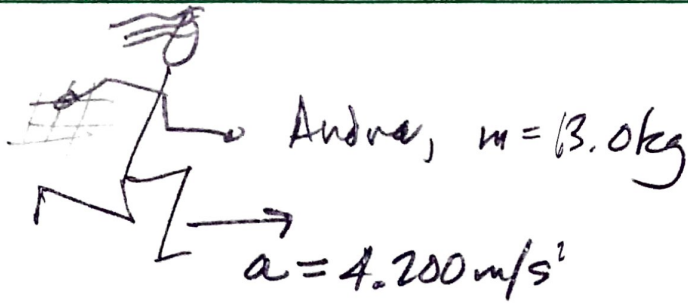 Andrea, m = 13.0kg
a = 4.200 m/s²